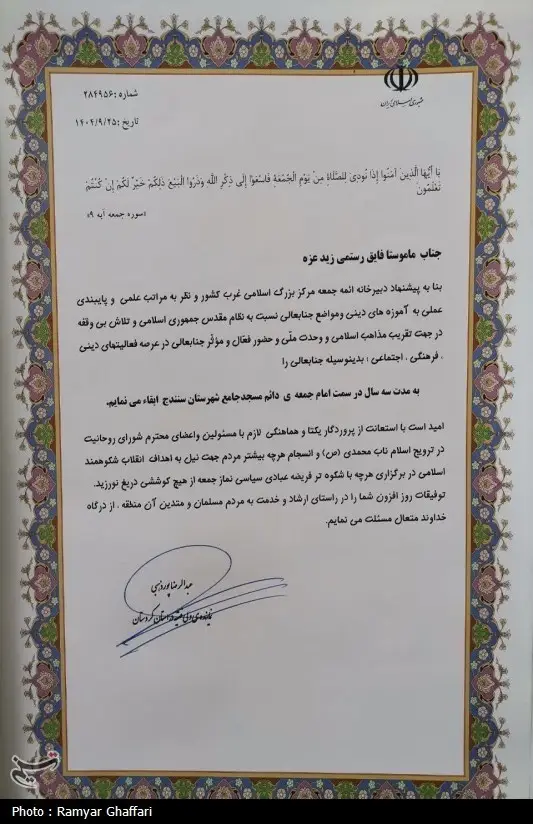 جمهوری اسلامی ایران
شماره :۲۸۴۹۵۶
تاریخ :۱۴۰۴/۹/۲۵
یَا أَیُّهَا الَّذِینَ آمَنُوا إِذَا نُودِیَ لِلصَّلَاةِ مِنْ یَوْمِ الْجُمُعَةِ فَاسْعَوْا إِلَى ذِکْرِ اللَّهِ وَذَرُوا الْبَیْعَ ذَلِکُمْ خَیْرٌ لَکُمْ إِنْ کُنْتُمْ
تَعْلَمُونَ
«سوره جمعه آیه ۹»
جناب ماموستا فایق رستمی زید عزه
بنا به پیشنهاد دبیرخانه ائمه جمعه مرکز بزرگ اسلامی غرب کشور و نظر به مراتب علمی و پایبندی
عملی به آموزه های دینی ومواضع جنابعالی نسبت به نظام مقدس جمهوری اسلامی و تلاش بی وقفه
در جهت تقریب مذاهب اسلامی و وحدت ملّی و حضور فعّال و مؤثّر جنابعالی در عرصه فعالیتهای دینی
، فرهنگی ، اجتماعی ؛ بدینوسیله جنابعالی را
به مدت سه سال در سمت امام جمعه ی دائم مسجدجامع شهرستان سنندج ابقاء می نمایم.
امید است با استعانت از پروردگار یکتا و هماهنگی لازم با مسئولین واعضای محترم شورای روحانیت
در ترویج اسلام ناب محمدی (ص) و انسجام هرچه بیشتر مردم جهت نیل به اهداف انقلاب شکوهمند
اسلامی در برگزاری هرچه با شکوه تر فریضه عبادی سیاسی نماز جمعه از هیچ کوششی دریغ نورزید.
توفیقات روز افزون شما را در راستای ارشاد و خدمت به مردم مسلمان و متدین آن منطقه ، از درگاه
خداوند متعال مسئلت می نمایم.
عبدالرضا پورذهبی
نماینده‌ی ولی فقیه در استان کردستان
تسنیم
Photo : Ramyar Ghaffari